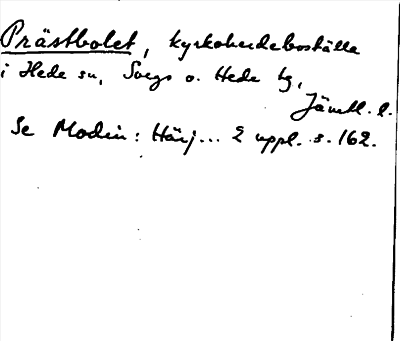 Prästbolet, kyrkoherdeboställe
i Hede sn, Svegs o. Hede tg,
Jämtl. l.
Se Modin: Härj... 2 uppl. s. 162.